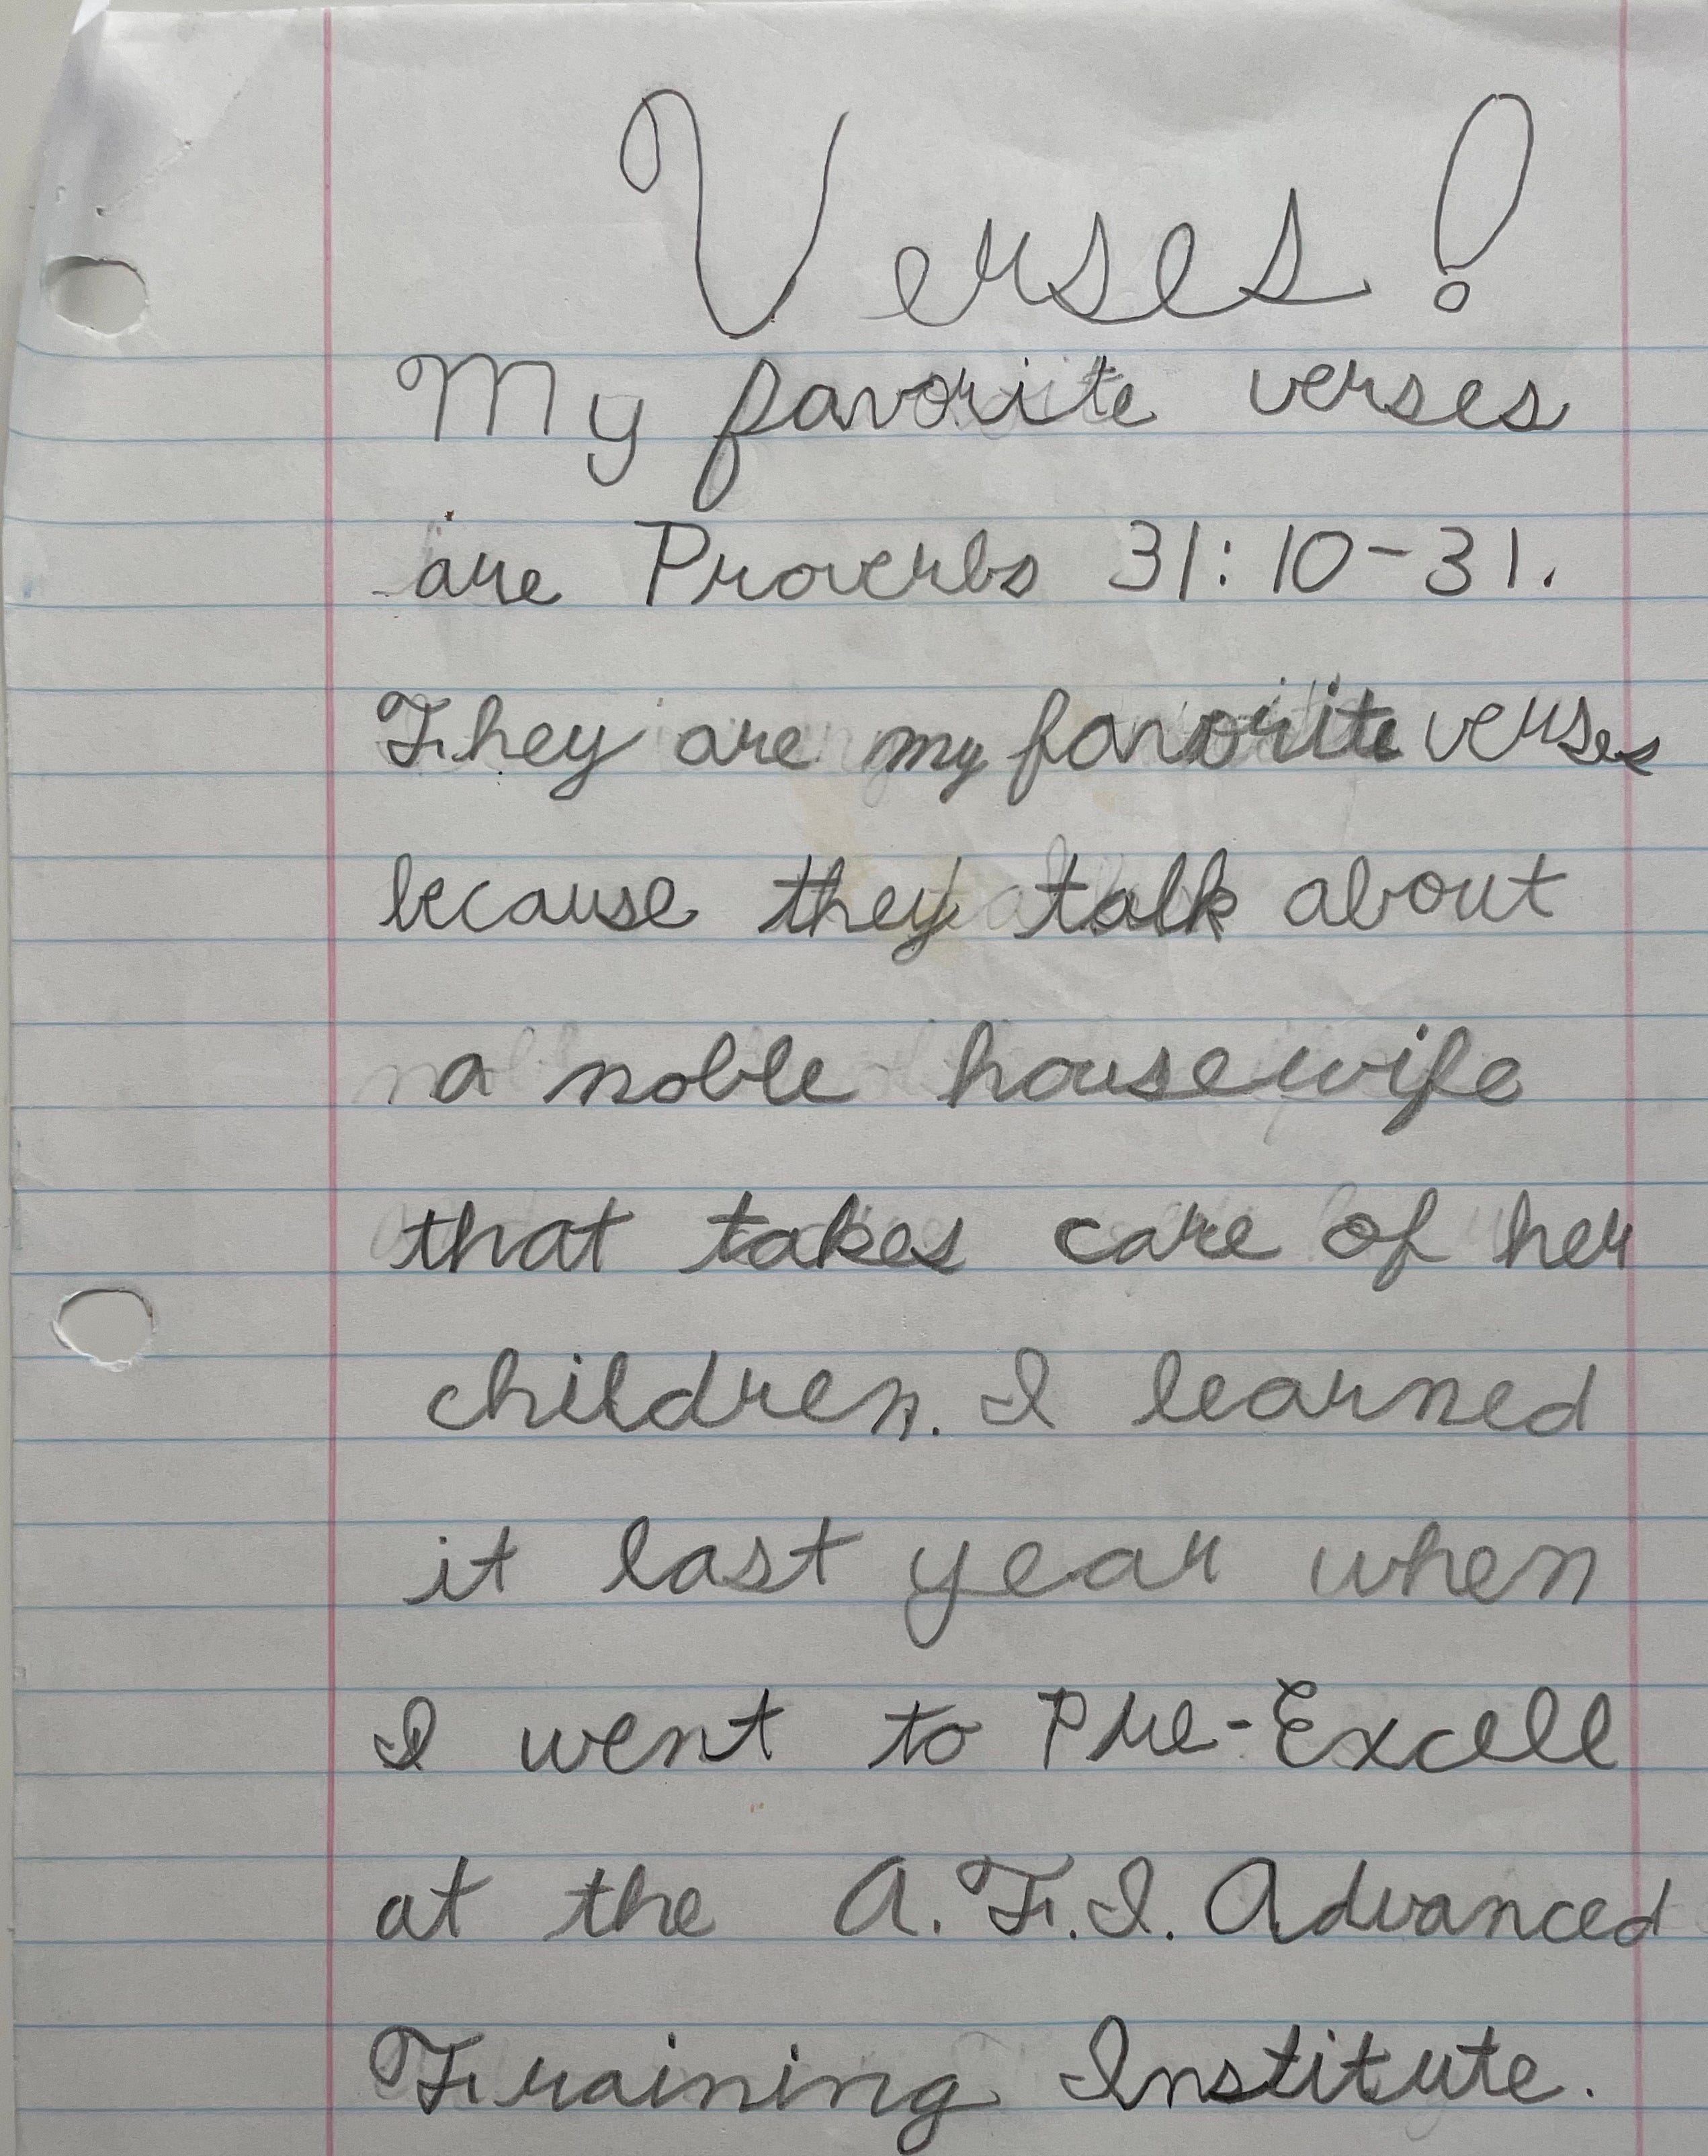 Verses!
My favorite verses
are Proverbs 31:10-31.
They are my favorite verses
because they talk about
a noble housewife
that takes care of her
children. I learned
it last year when
I went to Pre-Excell
at the A.T.I. Advanced
Training Institute.